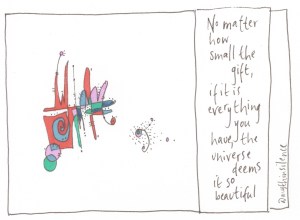 No matter
how
small the
gift,
if it is
everything
you
have, the
universe
deems
it so
beautiful